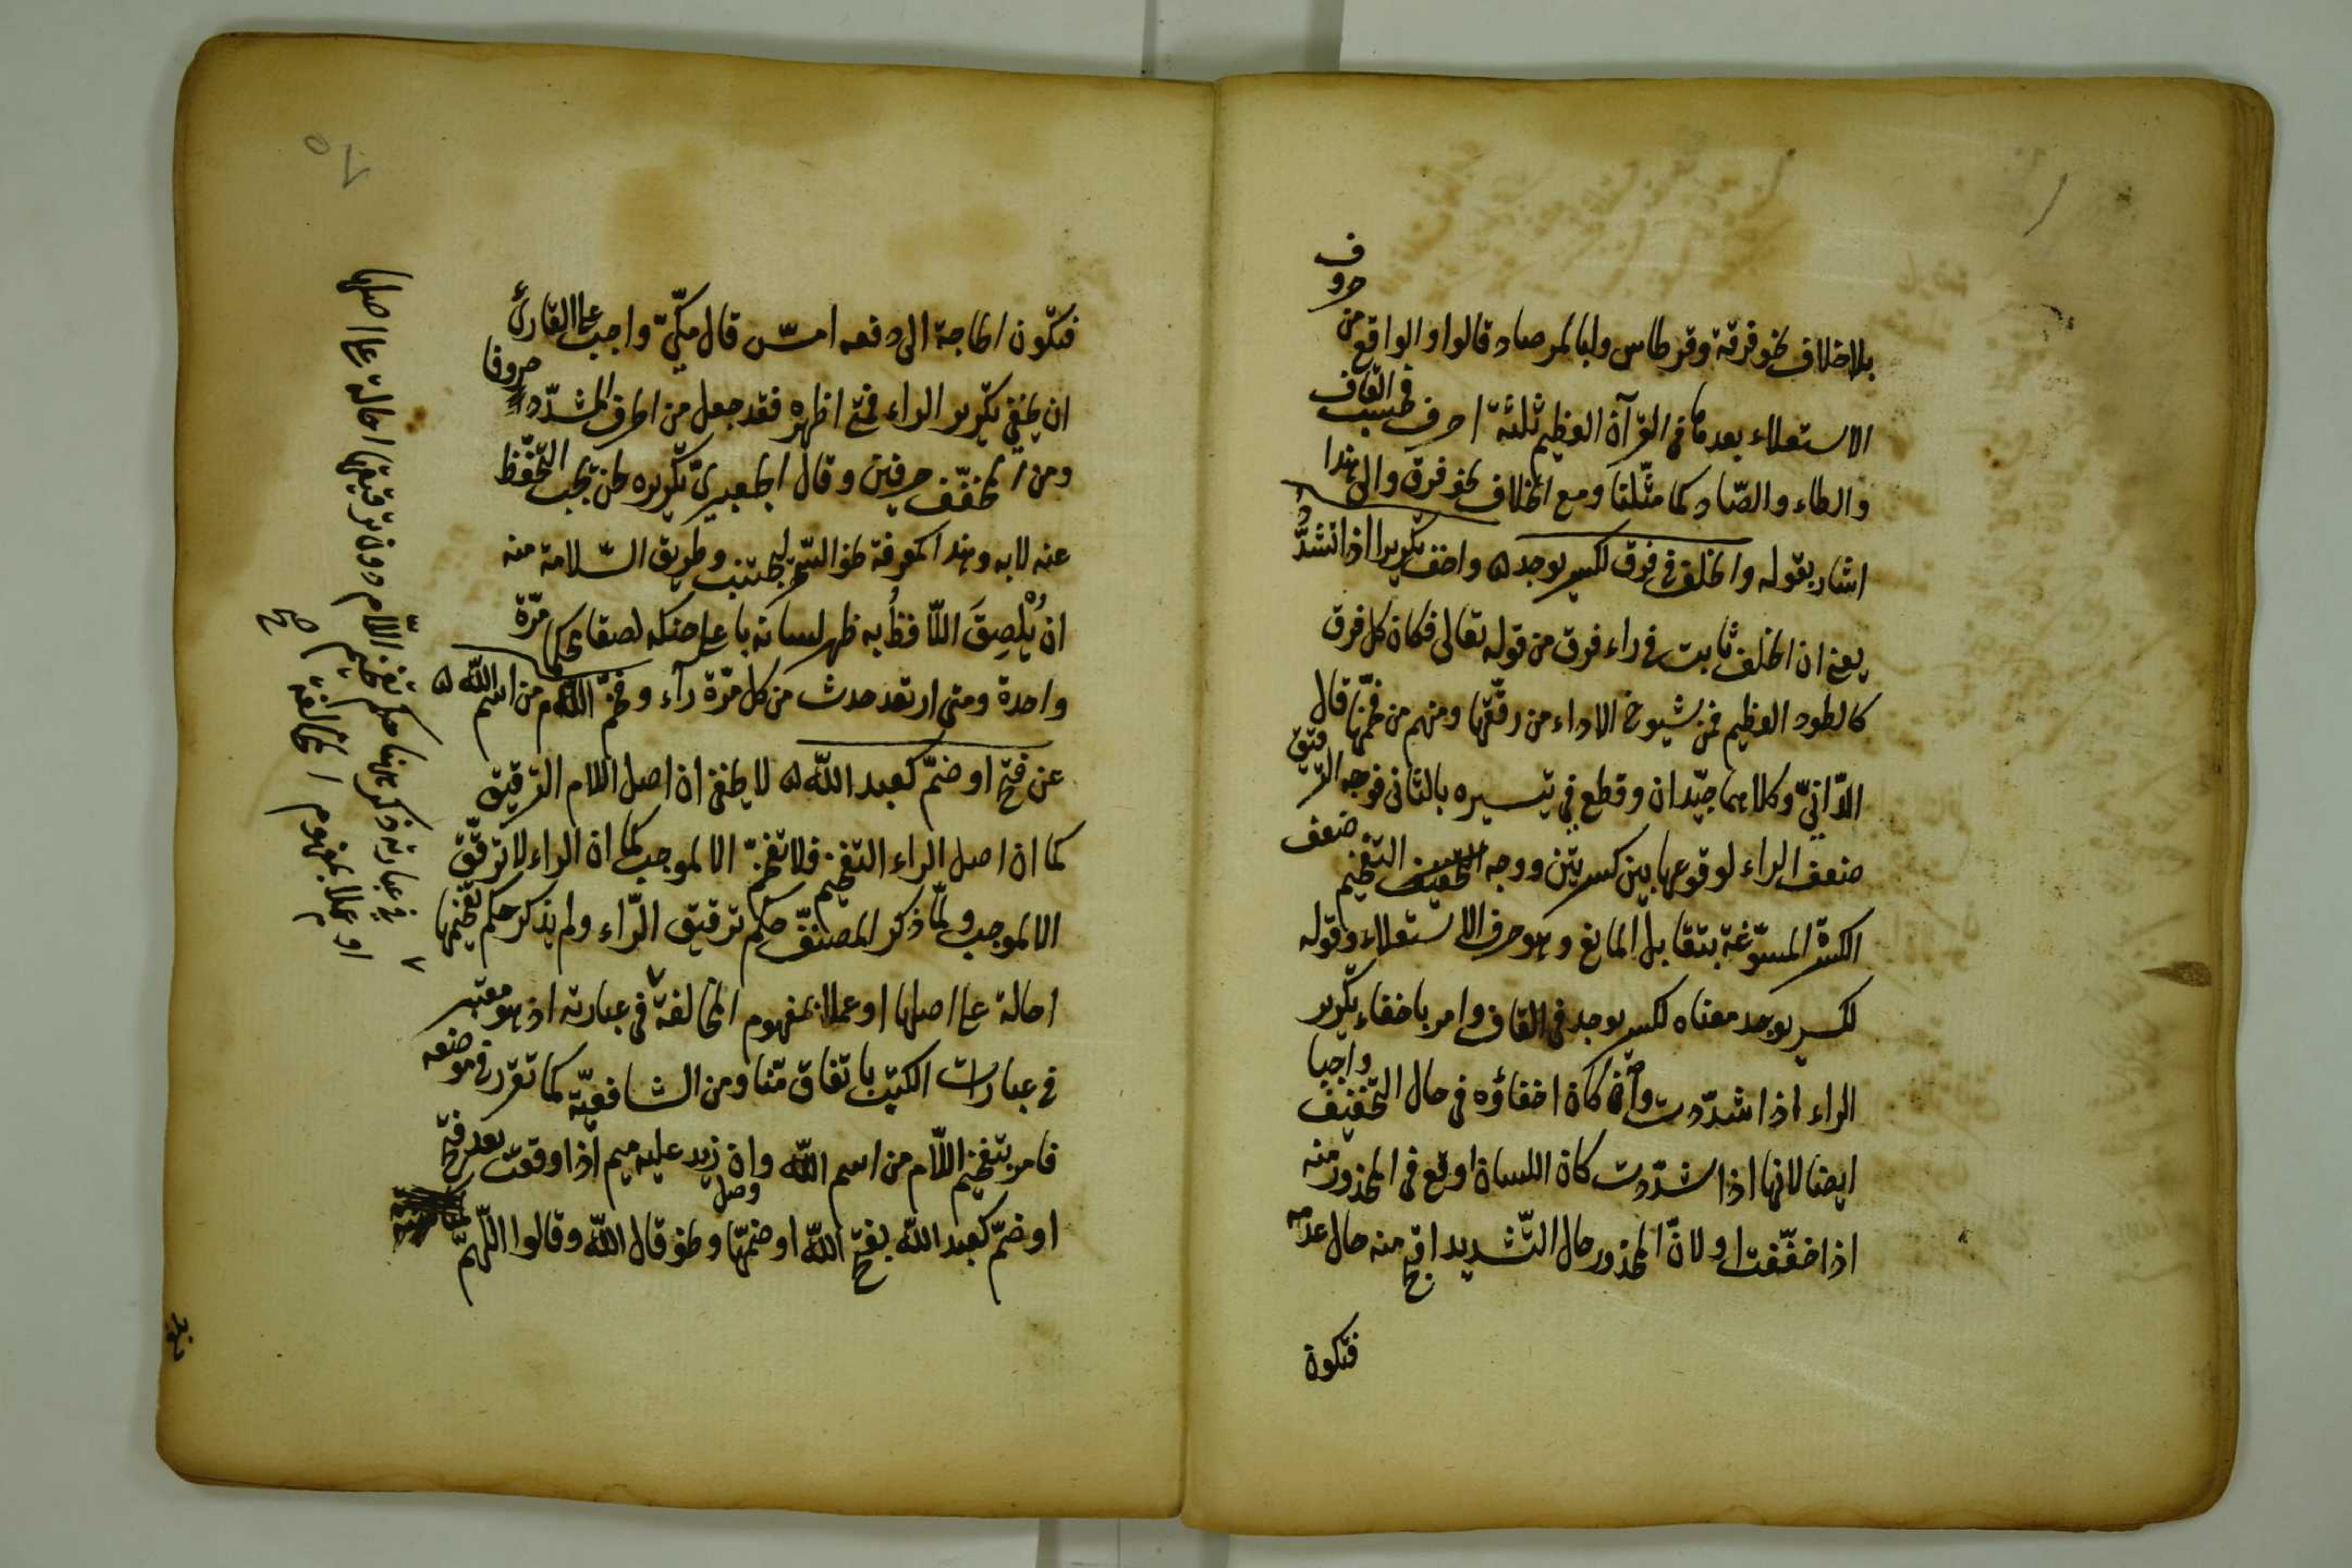 بلا خلاف نحو فرقة وقرطاس ولبالمرصاد قالوا والواقع من حروف
الاستعلاء بعدها في القرآن العظيم ثلثة احرف فحسب القاف
والطاء والصّاد كما مثّلنا ومع الخلاف نحو فرق والى هذا
اشار بقوله والخلف في فرق لكسر يوجد ه واخف تكريرا اذا تشدّد
يعني ان الخلف ثابت في راء فرق من قوله تعالى فكان كل فرق
كالطود العظيم فمن شيوخ الاداء من رقّقها ومنهم من فخّمها قال
الدّانيّ وكلاهما جيّدان وقطع في تيسيره بالثاني فوجه الترقيق
ضعف الراء لوقوعها بين كسرتين ووجه التفخيم ضعف
الكسرة المسوّغة بتقابل المانع وهو حرف الاستعلاء وقوله
لكسر يوجد معناه لكسر يوجد في القاف وامر باخفاء تكرير
الراء اذا شدّدت وان كان اخفاؤه في حال التّخفيف واجبا
ايضا لانها اذا شدّدت كان اللسان اوقع في المحذور منه
اذا خفّفت او لانّ المحذور حال التّشديد اقبح منه حال عدمه
فتكون
فتكون الحاجة الى دفعه امسّ قال مكّيّ واجب على القارئ
ان يخفي تكرير الراء فمتى اظهره فقد جعل من الحرف المشدّد حروفا
ومن المخفّف حرفين وقال الجعبريّ تكريره لحن يجب التحفّظ
عنه لا به وهذا كمعرفة السحر ليجتنب وطريق السّلامة منه
ان يُلْصِقَ اللّافظُ به ظهر لسانه باعلى حنكه لصقا محكما مرّة
واحدة ومتى ارتعد حدث من كل مرّة راء وفخّم اللّام من اسم اللّه ه
عن فتح او ضمّ كعبد اللّه ه لا يخفى ان اصل اللام الترقيق
كما ان اصل الراء التفخيم فلا تفخّم الا لموجب كما ان الراء لا ترقّق
الا لموجب ولمّا ذكر المصنّف حكم ترقيق الرّاء ولم يذكر حكم تفخيمها
احالة على اصلها او عملا بمفهوم المخالفة في عبارته اذ هو معتبر
في عبارات الكتب باتفاق منّا ومن الشافعيّة كما تقرر في موضعه
فامر بتفخيم اللّام من اسم اللّه وان زيد عليه ميم اذا وقعت بعد فتح
او ضمّ كعبد اللّه بفتح اللّه او ضمّها ونحو قال اللّه وقالوا اللّهمّ
وصل
في عبارته ذكر ههنا حكم تفخيم اللّام دون ترقيقها احالة على اصلها
او عملا بمفهوم المخالفة صح
بلغ